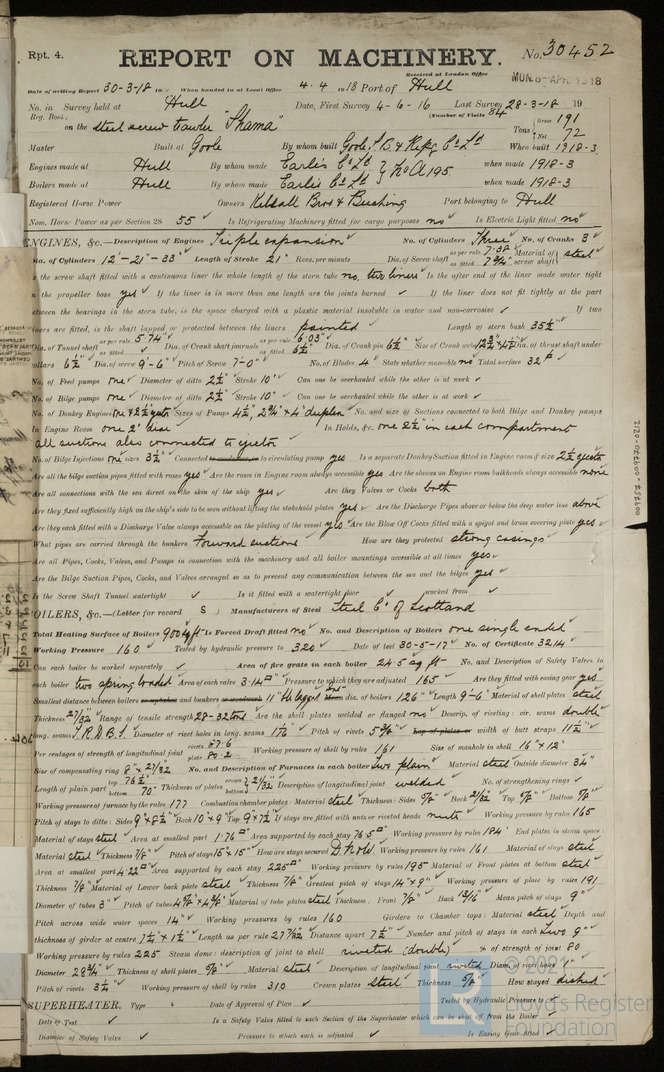 Rpt. 4.
REPORT ON MACHINERY. No. 30452
Received at London Office MON. 8-APR. 1918
Date of writing Report 30-3-18 19 When handed in at Local Office 4. 4. 1918 Port of Hull
No. in Survey held at Hull Date, First Survey 4-6-16 Last Survey 28-3-18 19
Reg. Book. (Number of Visits 84
on the steel screw trawler "Shama" Tons Gross 191 Net 72
Master Built at Goole By whom built Goole S.B. & Repg Co Ld When built 1918-3
Engines made at Hull By whom made Earle's Co Ld No A195 when made 1918-3
Boilers made at Hull By whom made Earle's Co Ld when made 1918-3
Registered Horse Power Owners Kelsall Bros & Beeching Port belonging to Hull
Nom. Horse Power as per Section 28 55 Is Refrigerating Machinery fitted for cargo purposes no Is Electric Light fitted no
ENGINES, &c.—Description of Engines Triple expansion No. of Cylinders Three No. of Cranks 3
Dia. of Cylinders 12"-21"-33" Length of Stroke 21" Revs. per minute Dia. of Screw shaft as per rule 7.38 as fitted 7 3/4" Material of screw shaft steel
Is the screw shaft fitted with a continuous liner the whole length of the stern tube no. two liners Is the after end of the liner made water tight
in the propeller boss yes If the liner is in more than one length are the joints burned If the liner does not fit tightly at the part
between the bearings in the stern tube, is the space charged with a plastic material insoluble in water and non-corrosive If two
liners are fitted, is the shaft lapped or protected between the liners painted Length of stern bush 35 1/2"
Dia. of Tunnel shaft as per rule 5.74" as fitted Dia. of Crank shaft journals as per rule 6.03" as fitted 6 1/2" Dia. of Crank pin 6 1/2" Size of Crank webs Dia. of thrust shaft under
collars 6 1/2" Dia. of screw 9'-6" Pitch of Screw 7'-0" No. of Blades 4 State whether moveable no Total surface 32
No. of Feed pumps one Diameter of ditto 2 1/2" Stroke 10" Can one be overhauled while the other is at work
No. of Bilge pumps one Diameter of ditto 2 1/2" Stroke 10" Can one be overhauled while the other is at work
No. of Donkey Engines Sizes of Pumps 4 1/2", 2 3/4" x 4" duplex No. and size of Suctions connected to both Bilge and Donkey pumps
In Engine Room one 2" dia In Holds, &c. one 2 1/2" in each compartment
all suctions also connected to ejector
No. of Bilge Injections one sizes 3 1/2" Connected to condenser, or to circulating pump yes Is a separate Donkey Suction fitted in Engine room & size 2 1/2 ejector
Are all the bilge suction pipes fitted with roses yes Are the roses in Engine room always accessible yes Are the sluices on Engine room bulkheads always accessible none
Are all connections with the sea direct on the skin of the ship yes Are they Valves or Cocks both
Are they fixed sufficiently high on the ship's side to be seen without lifting the stokehold plates yes Are the Discharge Pipes above or below the deep water line above
Are they each fitted with a Discharge Valve always accessible on the plating of the vessel yes Are the Blow Off Cocks fitted with a spigot and brass covering plate yes
What pipes are carried through the bunkers Forward suctions How are they protected strong casings
Are all Pipes, Cocks, Valves, and Pumps in connection with the machinery and all boiler mountings accessible at all times yes
Are the Bilge Suction Pipes, Cocks, and Valves arranged so as to prevent any communication between the sea and the bilges yes
Is the Screw Shaft Tunnel watertight Is it fitted with a watertight door worked from
BOILERS, &c.—(Letter for record S) Manufacturers of Steel Steel Co of Scotland
Total Heating Surface of Boilers 900 sq ft Is Forced Draft fitted no No. and Description of Boilers one single ended
Working Pressure 160 Tested by hydraulic pressure to 320 Date of test 30-5-17 No. of Certificate 3214
Can each boiler be worked separately Area of fire grate in each boiler 24.5 sq ft No. and Description of Safety Valves to
each boiler two spring loaded Area of each valve 3.14 Pressure to which they are adjusted 165 Are they fitted with easing gear yes
Smallest distance between boilers or uptakes and bunkers or woodwork 11" dia. of boilers 126" Length 9'-6" Material of shell plates steel
Thickness 27/32" Range of tensile strength 28-32 tons Are the shell plates welded or flanged no Descrip. of riveting: cir. seams double
long. seams T.R.D.B.S. Diameter of rivet holes in long. seams Pitch of rivets 5 3/8" Lap of plates or width of butt straps 11 1/2"
Per centages of strength of longitudinal joint rivets 87.6 plate 80.2 Working pressure of shell by rules 161 Size of manhole in shell 16" x 12"
Size of compensating ring 8" x 27/32 No. and Description of Furnaces in each boiler Two plain Material steel Outside diameter 34"
Length of plain part top 76 1/2" bottom 70" Thickness of plates crown bottom 21/32 Description of longitudinal joint welded No. of strengthening rings
Working pressure of furnace by the rules 177 Combustion chamber plates: Material steel Thickness: Sides 5/8" Back 21/32 Top 5/8" Bottom 5/8"
Pitch of stays to ditto: Sides 9" x 8 1/2" Back 10" x 9" Top 9" x 7 1/2" If stays are fitted with nuts or riveted heads nuts Working pressure by rules 165
Material of stays steel Area at smallest part 1.76 Area supported by each stay 76.5 Working pressure by rules 184 End plates in steam space
Material steel Thickness 7/8" Pitch of stays 15" x 15" How are stays secured D.N.&W. Working pressure by rules 161 Material of stays steel
Area at smallest part 4.22 Area supported by each stay 225 Working pressure by rules 195 Material of Front plates at bottom steel
Thickness 7/8" Material of Lower back plate steel Thickness 7/8" Greatest pitch of stays 14" x 9" Working pressure of plate by rules 191
Diameter of tubes 3" Pitch of tubes Material of tube plates steel Thickness: Front 7/8" Back 13/16" Mean pitch of stays 9"
Pitch across wide water spaces 14" Working pressures by rules 160 Girders to Chamber tops: Material steel Depth and
thickness of girder at centre 7 1/4" x 1 1/2" Length as per rule 27 7/32 Distance apart 7 1/2" Number and pitch of stays in each two 9"
Working pressure by rules 225 Steam dome: description of joint to shell riveted (double) % of strength of joint 80
Diameter 28 3/4" Thickness of shell plates 5/8" Material steel Description of longitudinal joint riveted Diam. of rivet holes 1"
Pitch of rivets 3 1/4" Working pressure of shell by rules 310 Crown plates steel Thickness 5/8" How stayed dished
SUPERHEATER. Type Date of Approval of Plan Tested by Hydraulic Pressure to
Date of Test Is a Safety Valve fitted to each Section of the Superheater which can be shut off from the Boiler
Diameter of Safety Valve Pressure to which each is adjusted Is Easing Gear fitted
© 2021
Lloyd's Register
Foundation